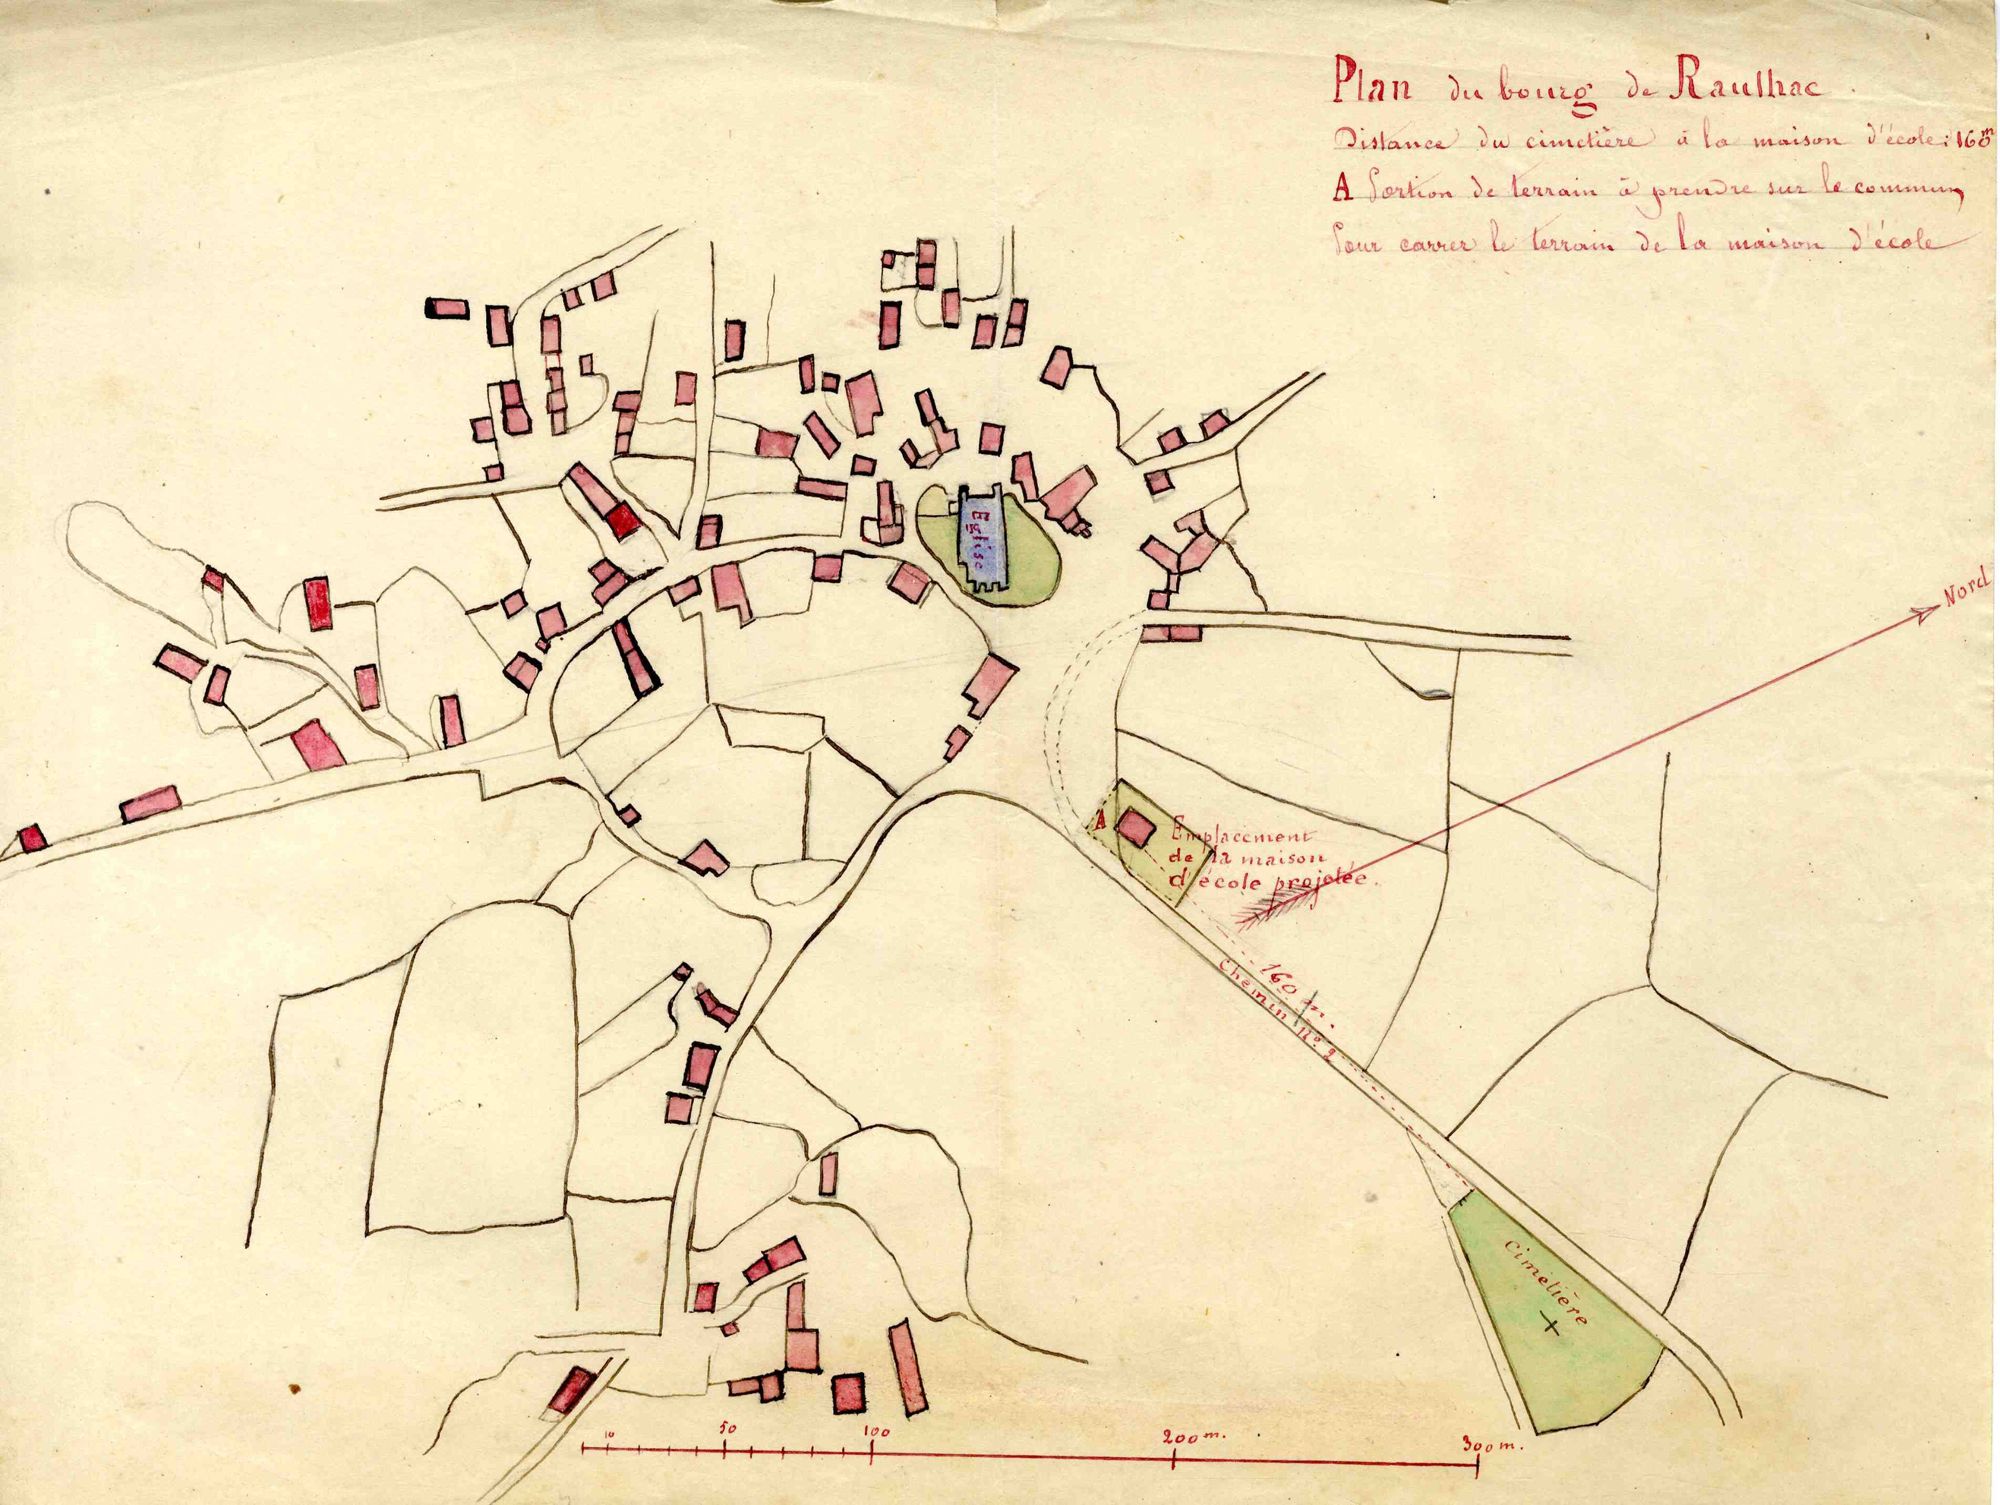 Plan du bourg de Raulhac.
Distance du cimetière à la maison d'école: 160m
A Portion de terrain à prendre sur le commun,
Pour carrer le terrain de la maison d'école
Nord
Eglise
A
Emplacement
de la maison
d'école projetée.
160 m.
Chemin No. 2
Cimetière
10 50 100 200m. 300m.